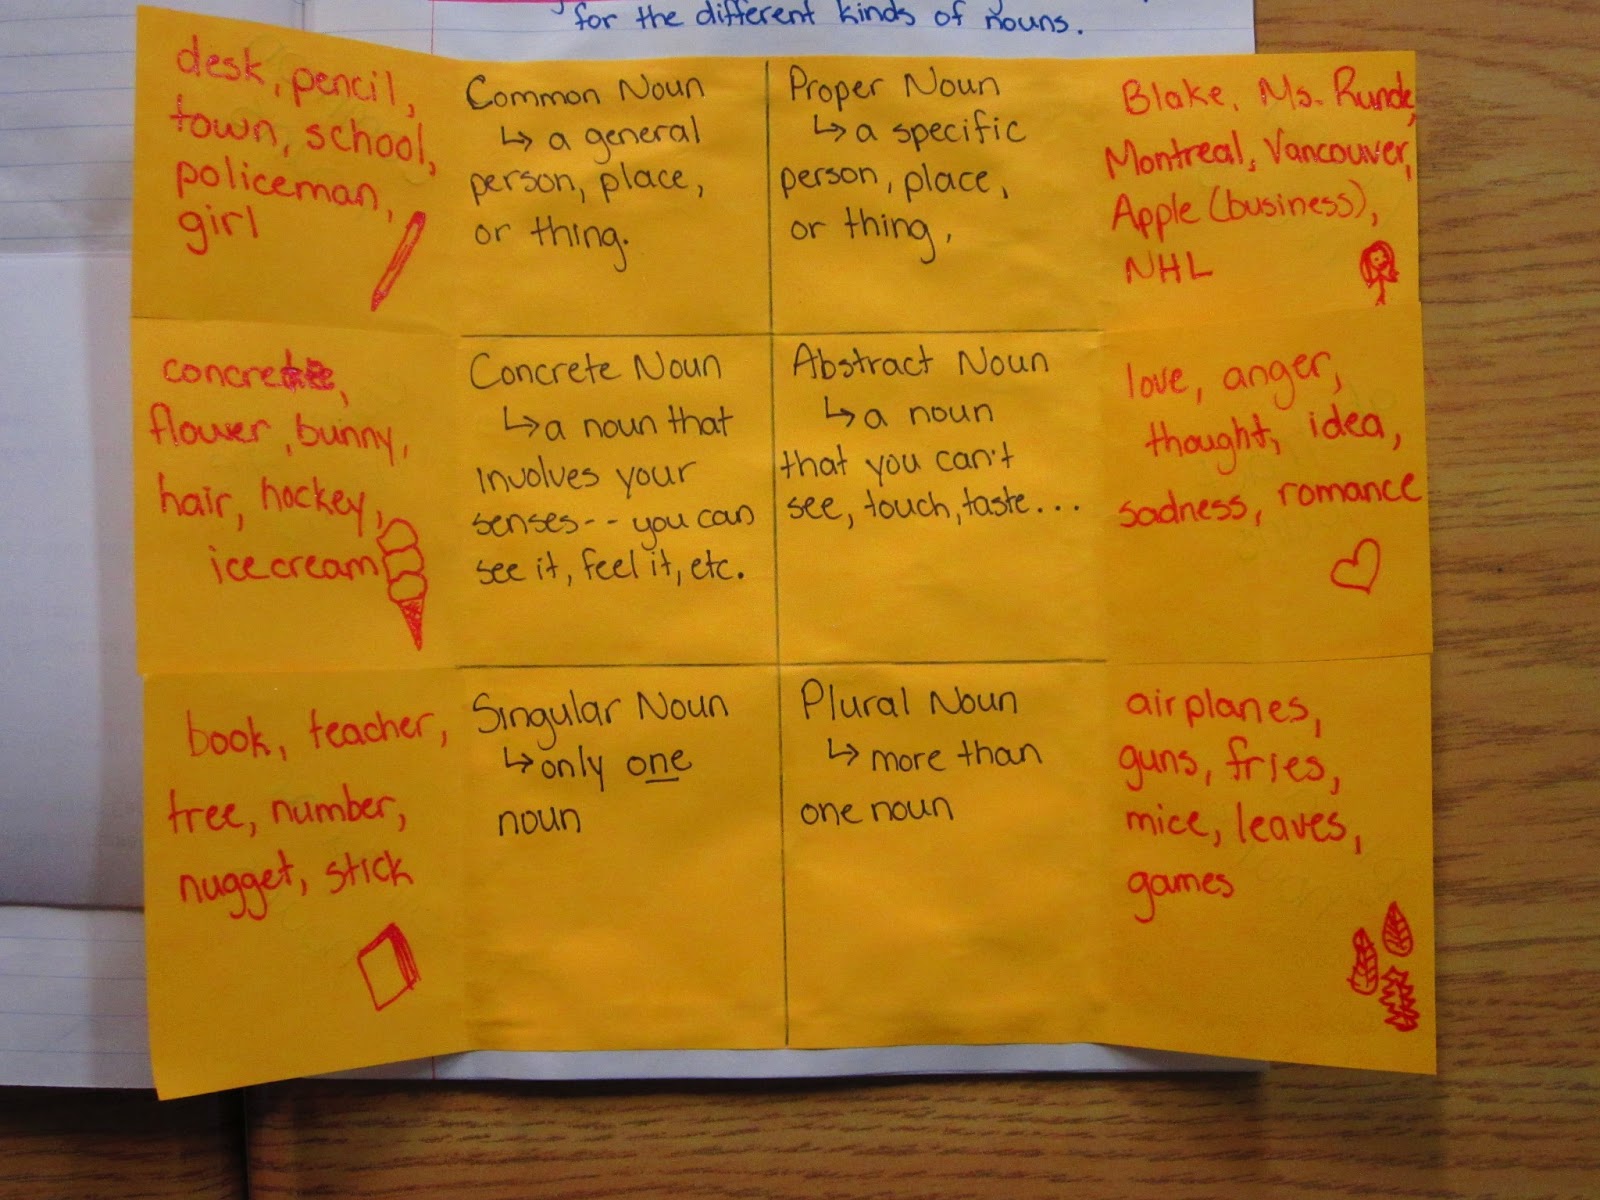 for the different kinds of nouns.
desk, pencil,
town, school,
policeman,
girl
Common Noun
↳ a general
person, place,
or thing.
Proper Noun
↳ a specific
person, place,
or thing,
Blake, Ms. Runde,
Montreal, Vancouver,
Apple (business),
NHL
concrete,
flower, bunny,
hair, hockey,
ice cream
Concrete Noun
↳ a noun that
involves your
senses-- you can
see it, feel it, etc.
Abstract Noun
↳ a noun
that you can't
see, touch, taste...
love, anger,
thought, idea,
sadness, romance
book, teacher,
tree, number,
nugget, stick
Singular Noun
↳ only one
noun
Plural Noun
↳ more than
one noun
airplanes,
guns, fries,
mice, leaves,
games